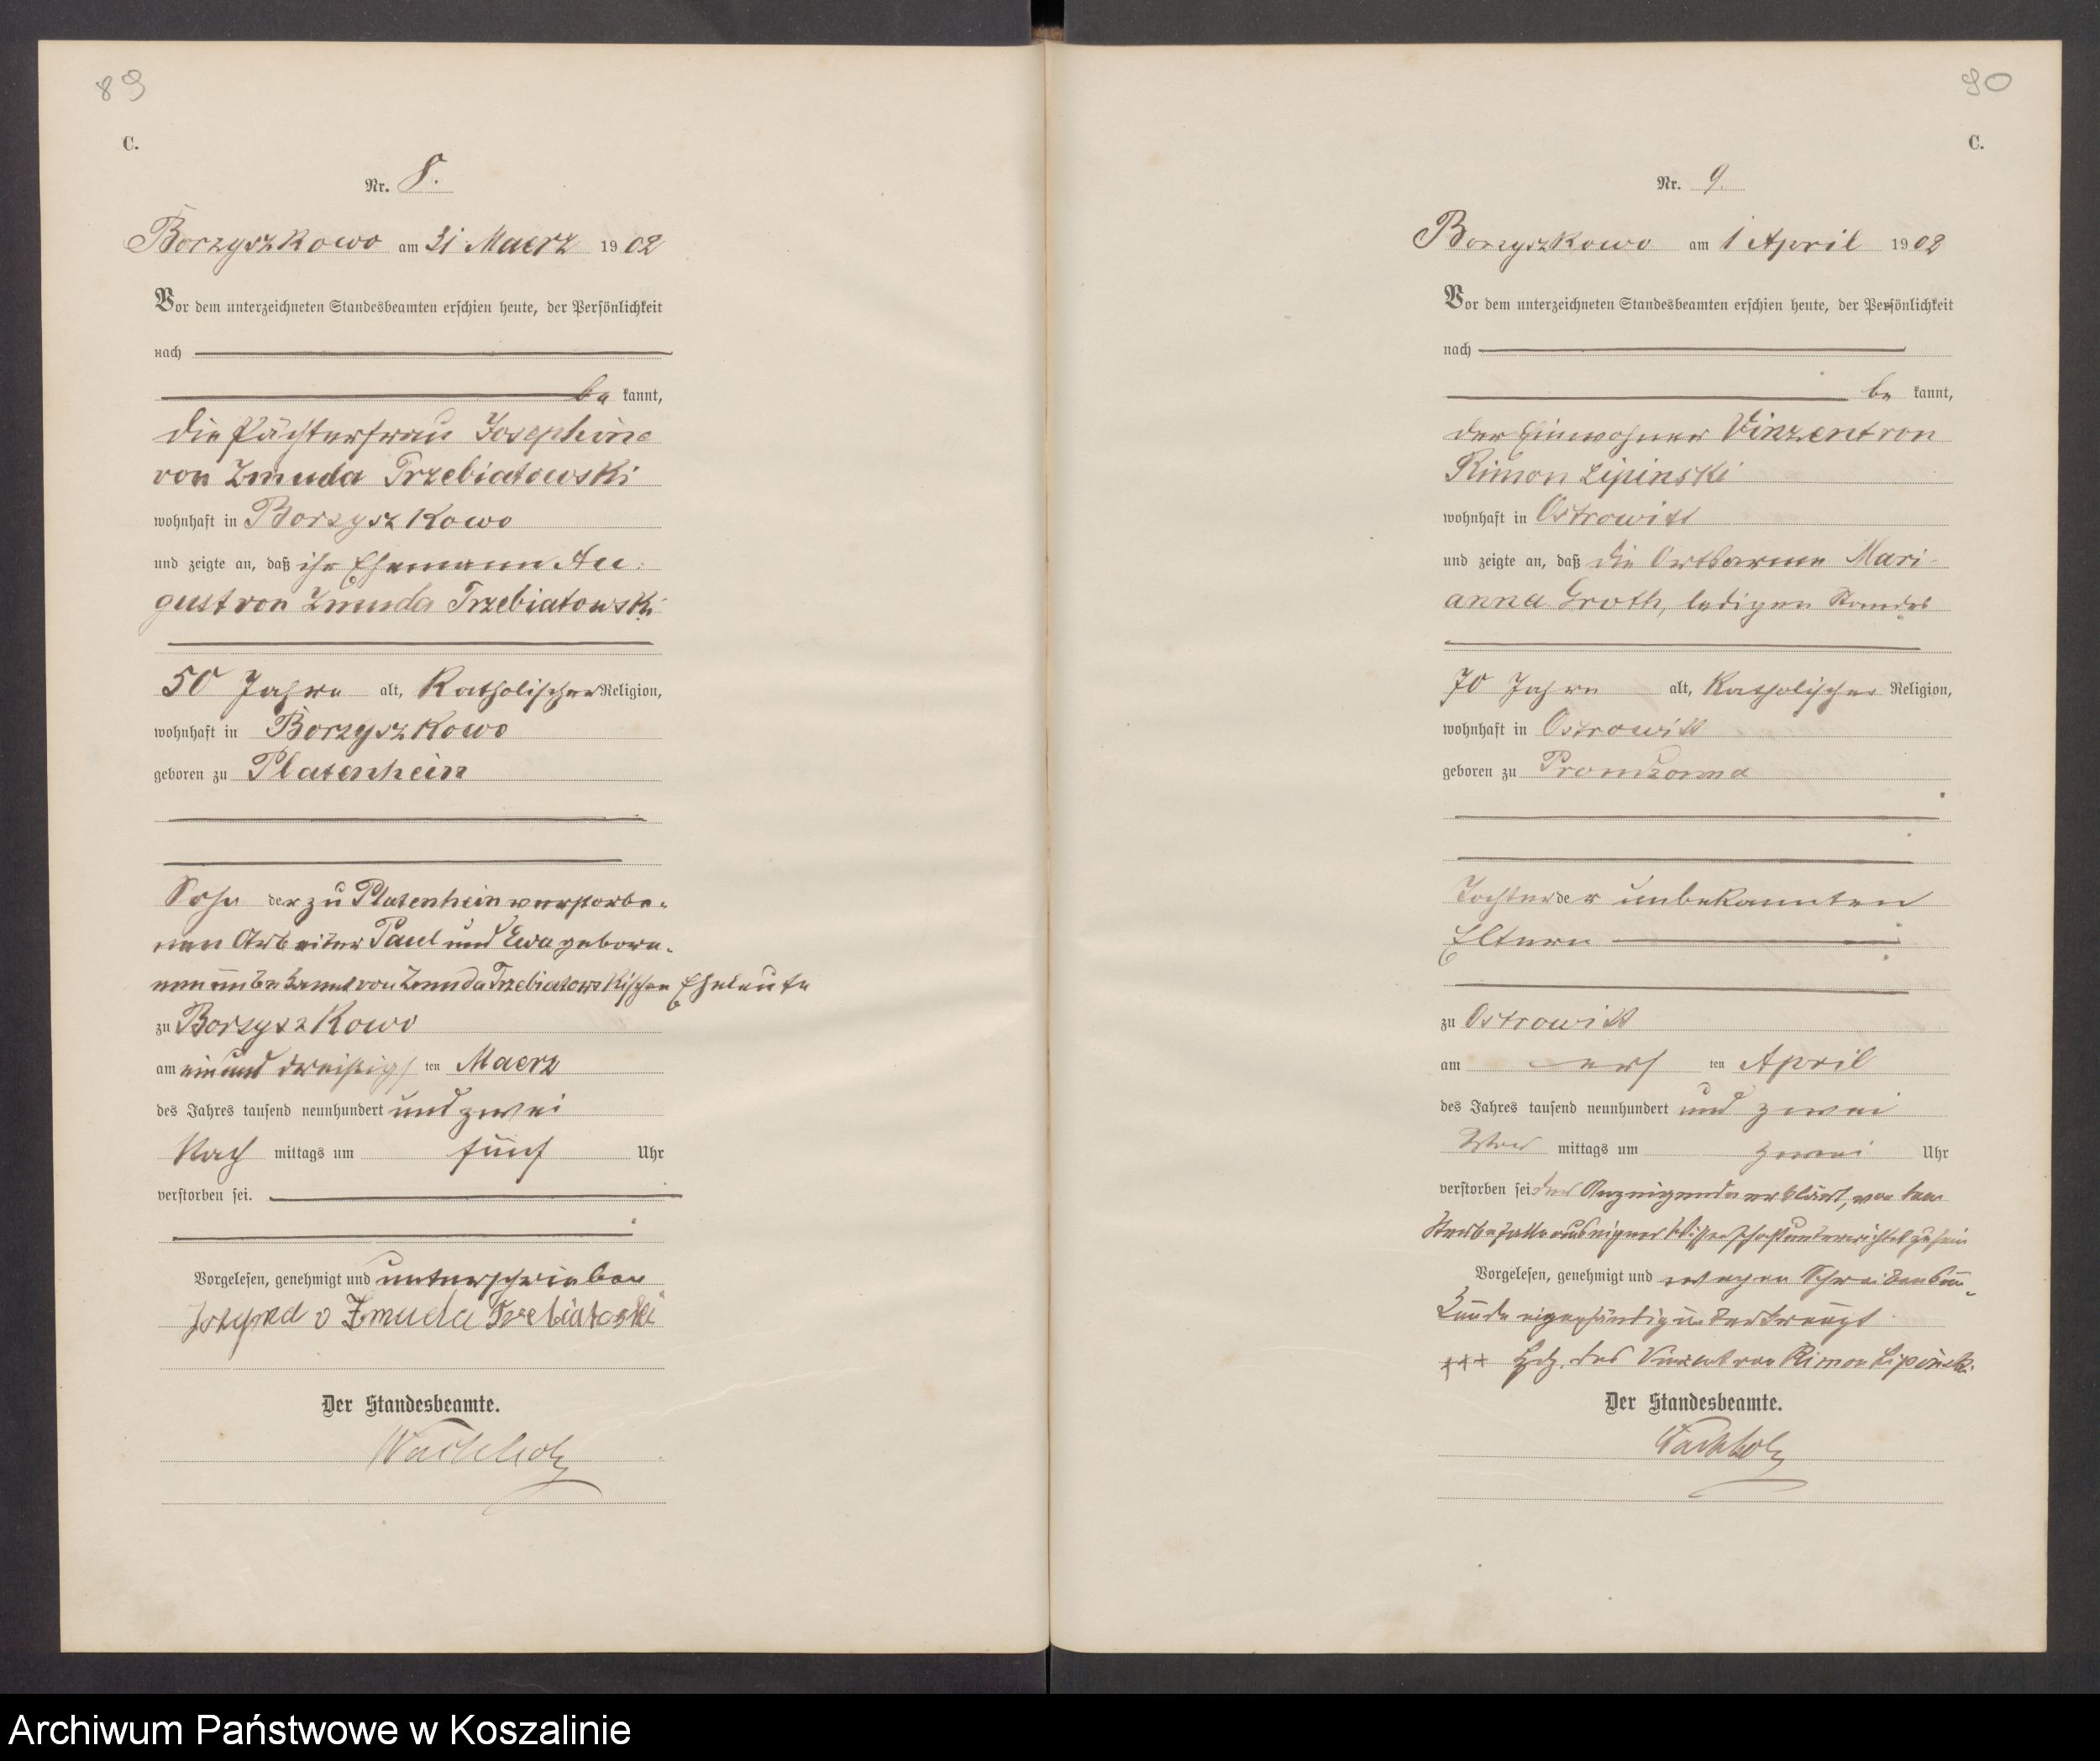 89
C.
Nr. 8.
Borzyszkowo am 31 Maerz 1902
Vor dem unterzeichneten Standesbeamten erschien heute, der Persönlichkeit
nach
be kannt,
die Pächterfrau Josephine
von Zmuda Trzebiatowski
wohnhaft in Borzyszkowo
und zeigte an, daß ihr Ehemann Au-
gust von Zmuda Trzebiatowski
50 Jahre alt, Katholischer Religion,
wohnhaft in Borzyszkowo
geboren zu Platenhein
Sohn der zu Platenhein verstorbe-
nen Arbeiter Paul und Ewa gebore-
nen unbekannt von Zmuda Trzebiatowskischen Eheleute
zu Borzyszkowo
am einund dreißigs ten Maerz
des Jahres tausend neunhundert und zwei
Nach mittags um fünf Uhr
verstorben sei.
Vorgelesen, genehmigt und unterschrieben
v Zmuda Trzebiatoski
Der Standesbeamte.
Wachholz
90
C.
Nr. 9.
Borzyszkowo am 1 April 1902
Vor dem unterzeichneten Standesbeamten erschien heute, der Persönlichkeit
nach
be kannt,
der Einwohner Vinzent von
Rimon Lipinski
wohnhaft in Ostrowitt
und zeigte an, daß die Ortsarme Mari-
anna Groth, ledigen Standes
70 Jahre alt, Katholischer Religion,
wohnhaft in Ostrowitt
geboren zu
Tochter der unbekannten
Eltern
zu Ostrowitt
am ers ten April
des Jahres tausend neunhundert und zwei
Vor mittags um zwei Uhr
verstorben sei der Anzeigende erklärt, von dem
Sterbefalle aus eigner Wissenschaft unterrichtet zu sein
Vorgelesen, genehmigt und wegen Schreibensun-
kunde eigenhändig unterkreuzt
+++ Hdz. des Vinzent von Rimon Lipinski
Der Standesbeamte.
Wachholz
Archiwum Państwowe w Koszalinie